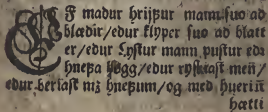 EF madur hrijfur mann suo ad
blædir/edur klyper suo ad blatt
er/edur Lystur mann pustur eda
hnefa høgg/edur ryskiast meñ/
edur beriast mz hnefum/og med hueriū
hætti